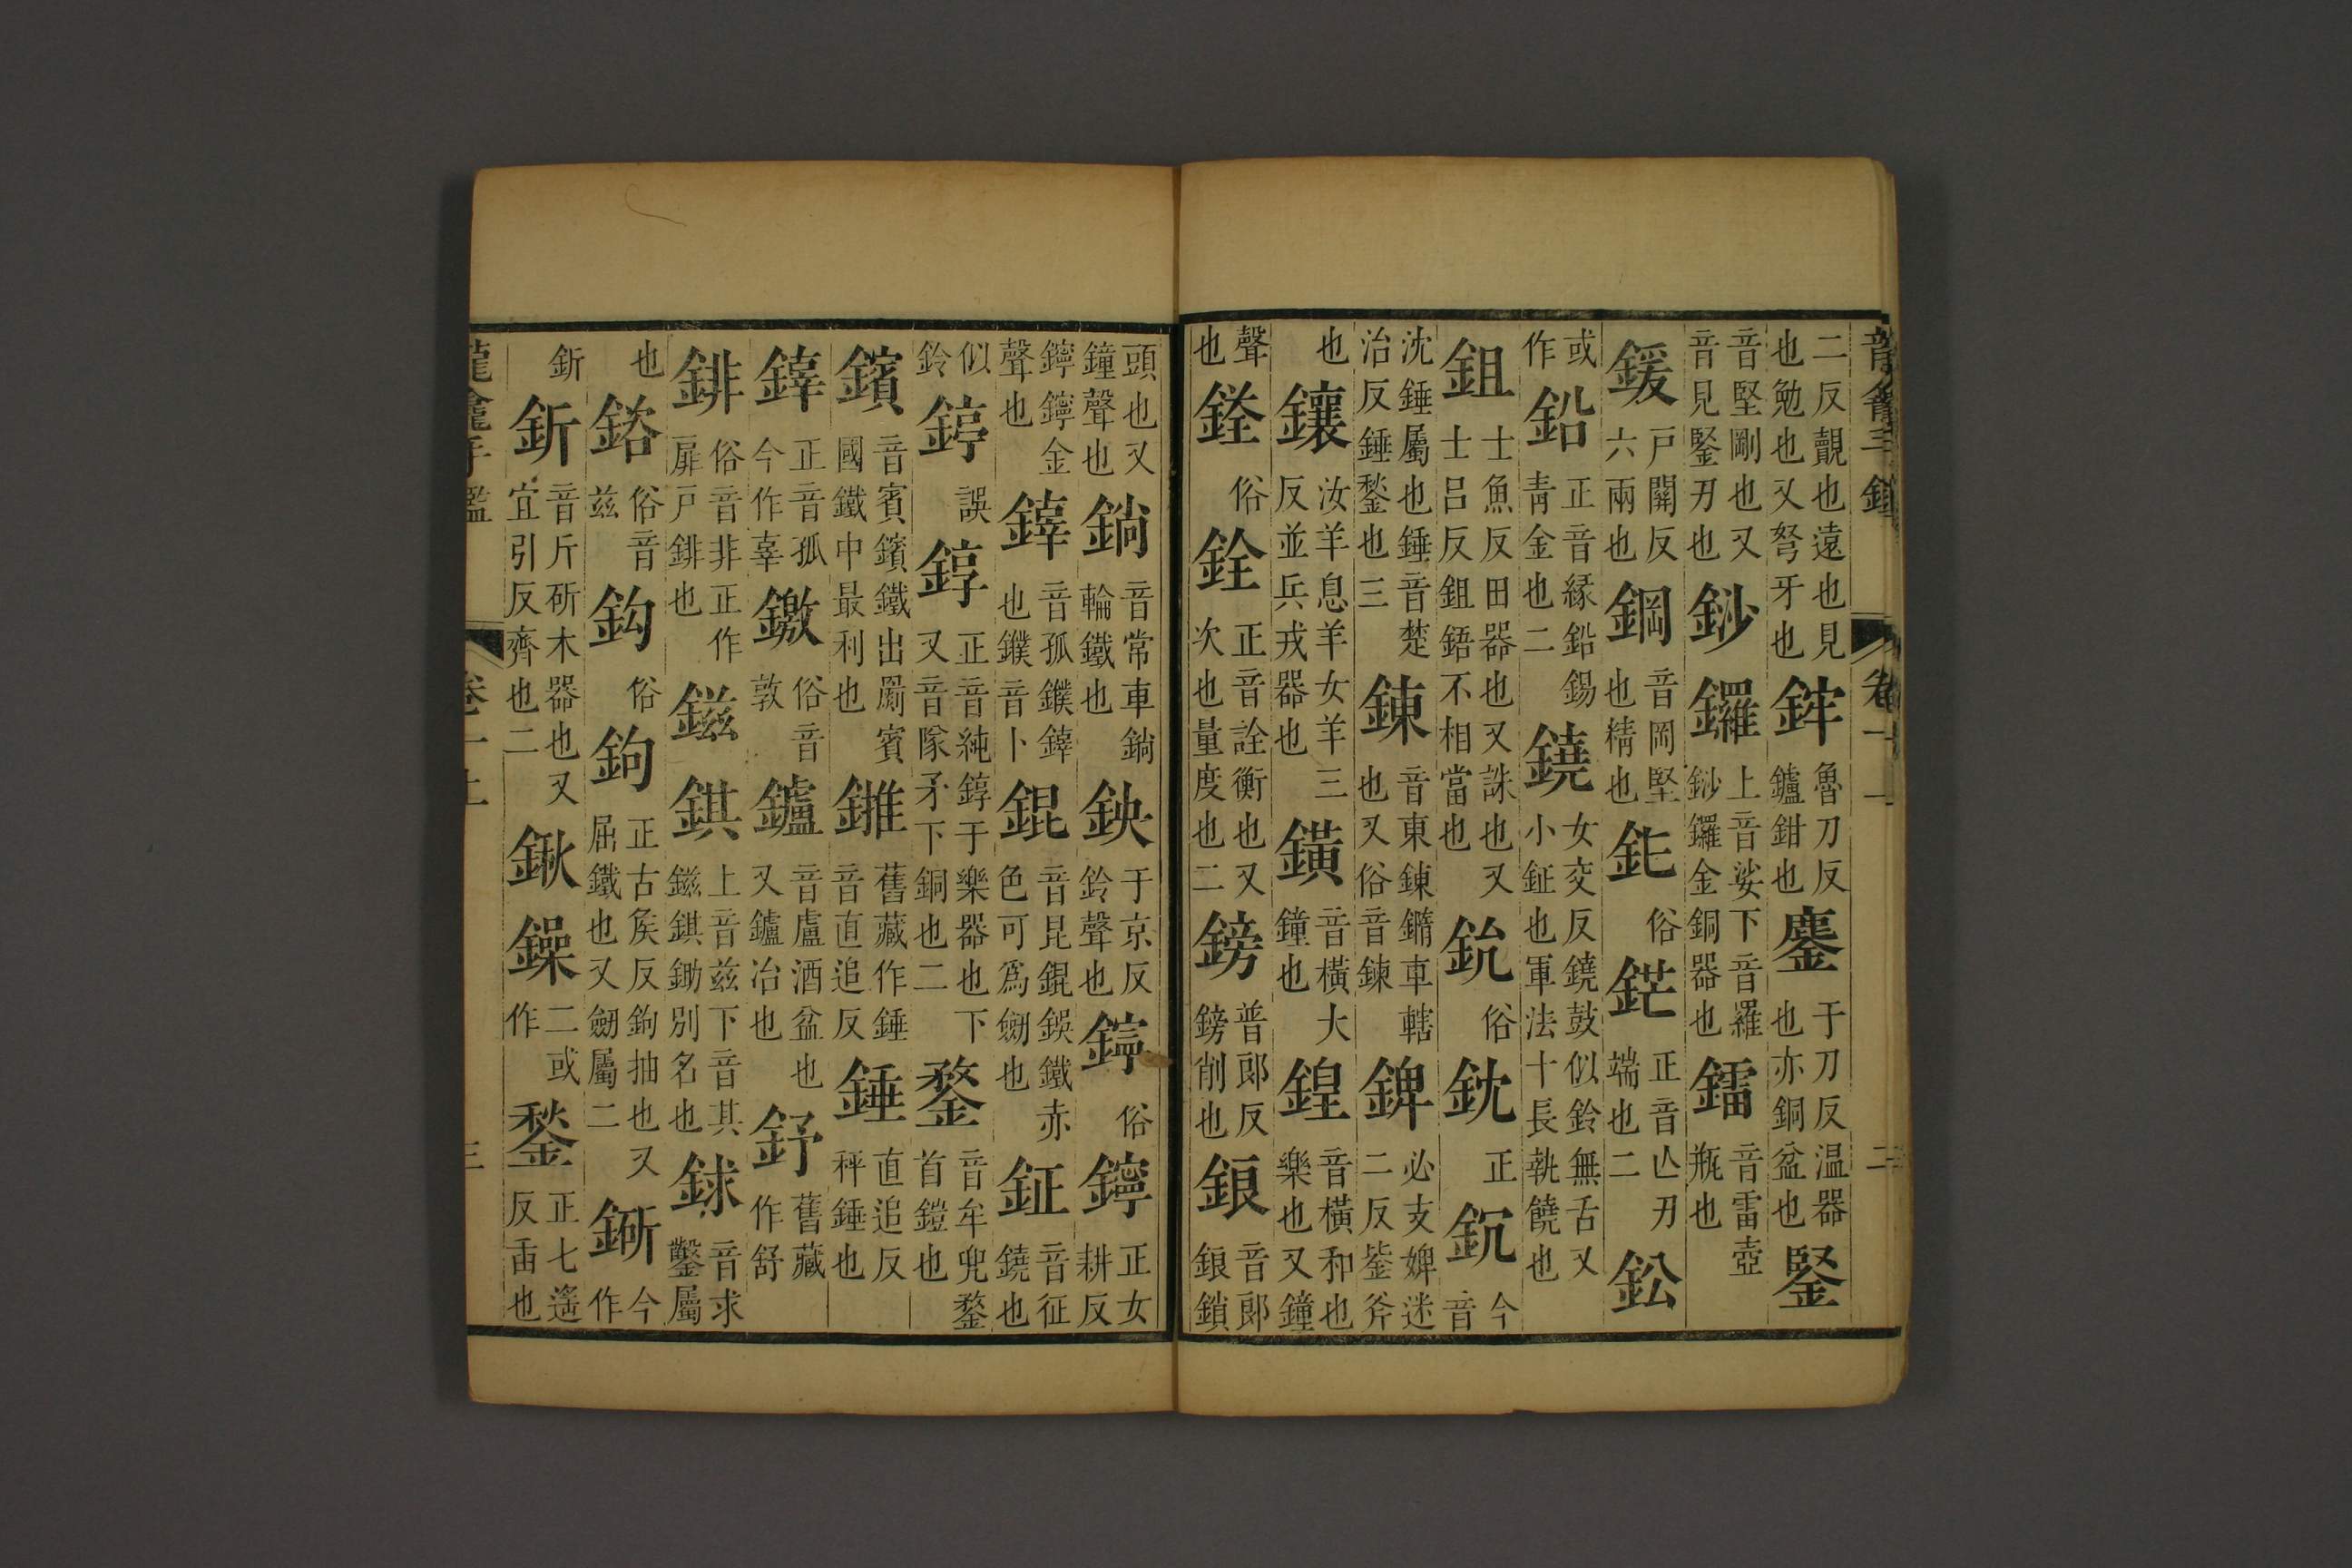 二反覿也遠也見也勉也又弩牙也鉾魯刀反鑪鉗也鏖于刀反温器也亦銅盆也鋻
音堅剛也又音見鋻刃也鈔鑼上音娑下音羅鈔鑼金銅器也鐳音雷壺瓶也
鍰戸關反六兩也鋼音岡堅也精也俗鋩正音亾刃端也二鈆
或作鉛正音縁鉛錫青金也二鐃女交反鐃鼓似鈴無舌又小鉦也軍法十長執鐃也
鉏士魚反田器也又誅也又士吕反鉏鋙不相當也俗鈂正今音
沈鍤屬也鍤音楚治反鍤鍫也三鍊音東鍊鐊車轄也又俗音鍊錍必支婢迷二反鈭斧
也鑲汝羊息羊女羊三反並兵戎器也鐄音横大鐘也鍠音横和也樂也又鐘
聲也俗銓正音詮衡也又次也量度也二鎊普郎反鎊削也鋃音郎鋃鎖
頭也又鐘聲也鋿音常車鋿輪鐵也鉠于京反鈴聲也俗鑏正女耕反
鑏鑏金聲也音孤鏷也鏷音卜錕音昆錕鋘鐵赤色可爲劒也鉦音征鐃也
似鈴誤錞正音純錞于樂器也下又音隊矛下銅也二鍪音牟兜鍪首鎧也
鑌音賓鑌鐵出罽賓國鐵中最利也錐舊藏作錘音直追反錘直追反秤錘也
正音孤今作辜俗音敦鑪音盧酒盆也又鑪冶也舊藏作舒
俗音非正作扉戸也鎡錤上音兹下音其鎡錤鋤別名也銶音求鑿屬
也俗音兹鈎俗鉤正古侯反鉤抽也又屈鐵也又劒屬二今作
釿音斤斫木器也又宜引反齊也二鍬鐰二或作鍫正七遥反臿也
卷一上
三